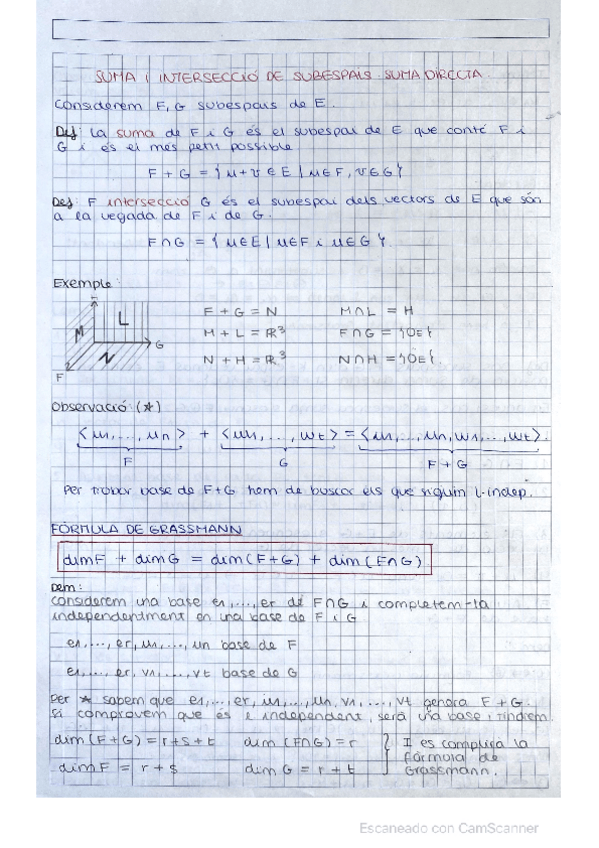 SUMA I INTERSECCIÓ DE SUBESPAIS. SUMA DIRECTA.
Considerem F, G subespais de E.
Def: La suma de F i G és el subespai de E que conté F i
G i és el més petit possible.
F + G = {u+v ∈ E | u∈F, v∈G}
Def: F intersecció G és el subespai dels vectors de E que són
a la vegada de F i de G.
F∩G = {u∈E | u∈F i u∈G}.
Exemple:
M L N G F
F + G = N M∩L = H
M + L = ℝ³ F∩G = {0E}
N + H = ℝ³ N∩H = {0E}.
Observació: (*)
<u1,...,un> + <w1,...,wt> = <u1,...,un,w1,...,wt>.
F G F+G
Per trobar base de F+G hem de buscar els que siguin l.indep.
FÓRMULA DE GRASSMANN
dimF + dimG = dim(F+G) + dim(F∩G)
Dem:
Considerem una base e1,...,er de F∩G i completem-la
independentment en una base de F i G
e1,...,er,u1,...,un base de F
e1,...,er,v1,...,vt base de G
Per * sabem que e1,...,er,u1,...,un,v1,...,vt genera F+G.
Si comprovem que és l independent, serà una base i tindrem
dim(F+G)=r+s+t dim(F∩G)=r I es complirà la
fórmula de
dimF = r+s dim G = r+t Grassmann.
Escaneado con CamScanner